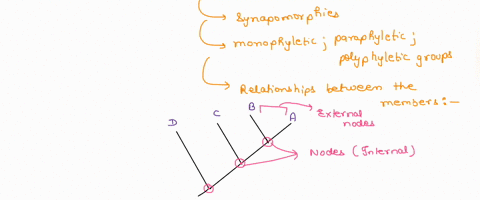 Synapomorphies
monophyletic ; paraphyletic ;
polyphyletic groups
Relationships between the
members :-
B
A
External
nodes
C
D
Nodes (Internal)